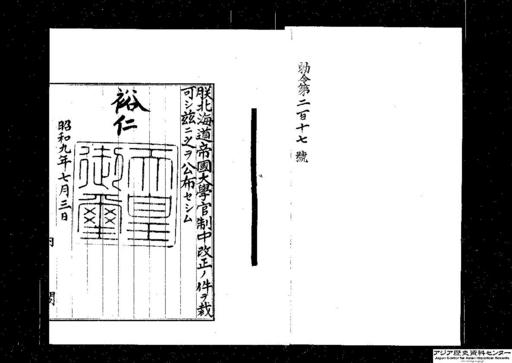 勅令第二百十七號
朕北海道帝國大學官制中改正ノ件ヲ裁
可シ茲ニ之ヲ公布セシム
裕仁
天皇
御璽
昭和九年七月三日
内閣
アジア歴史資料センター
Japan Center for Asian Historical Records